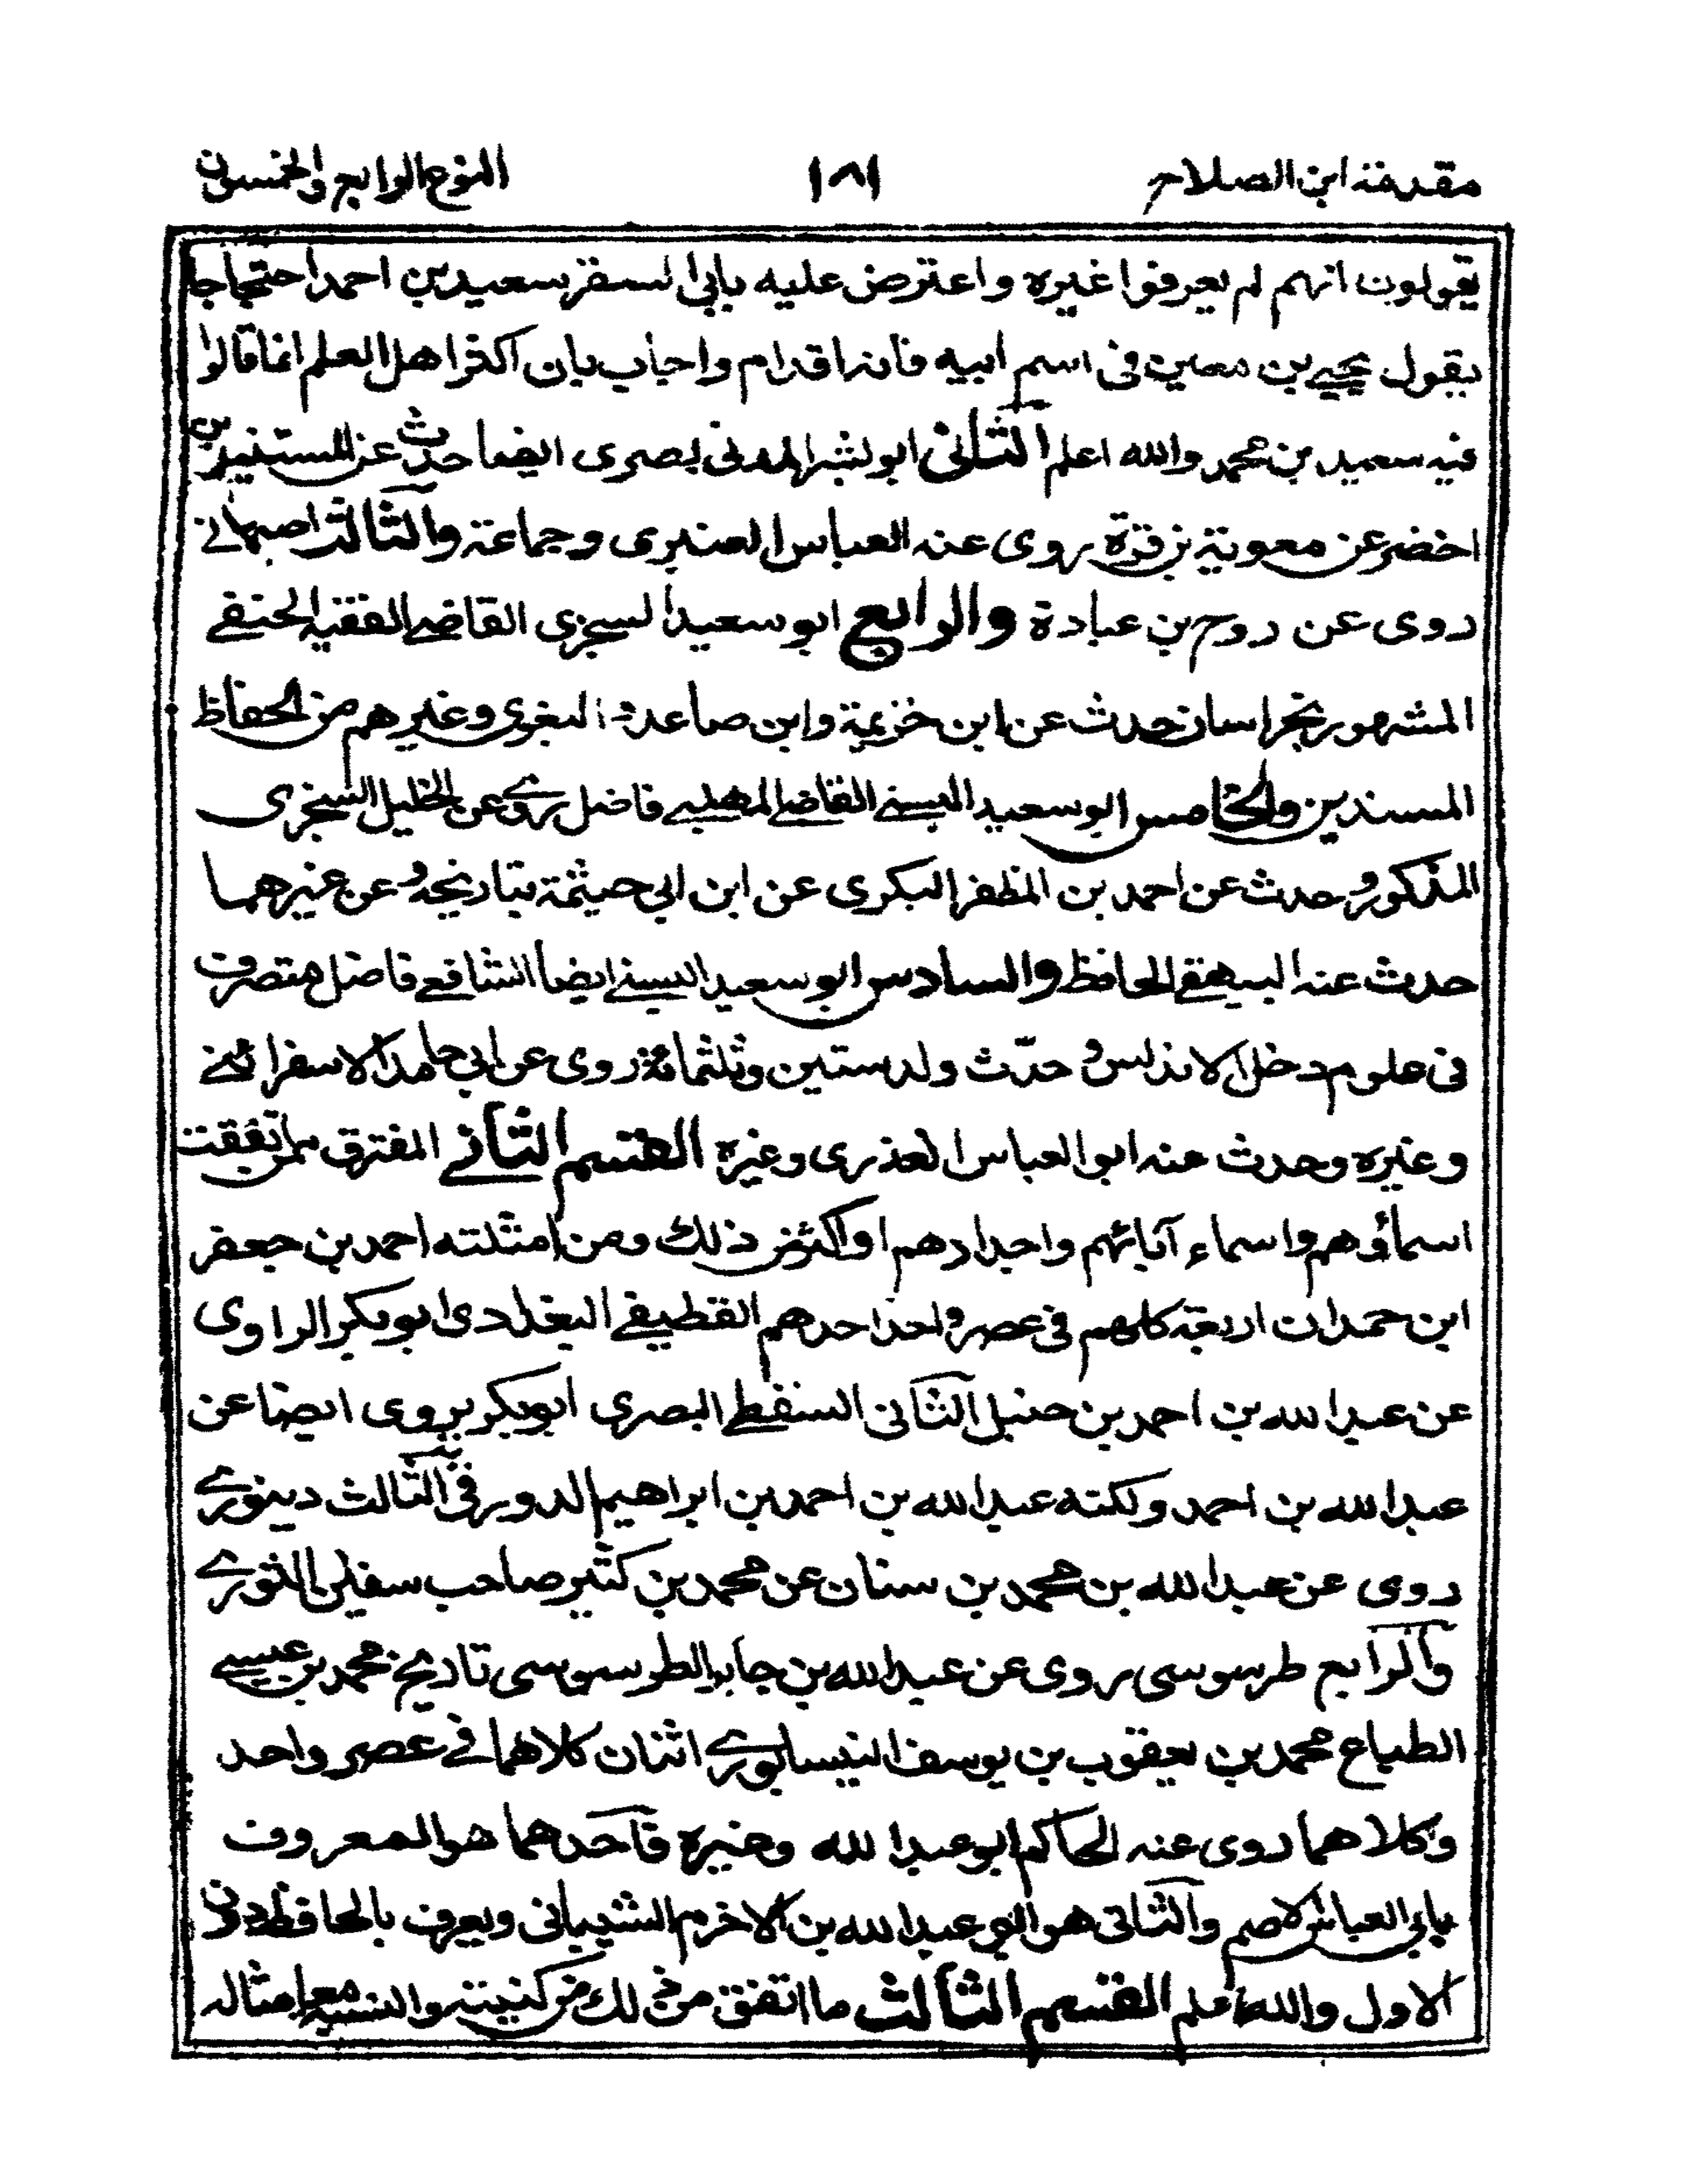 مقدمة ابن الصلاح ١٨١ النوع الرابع والخمسون
يقولون انهم لم يعرفوا غيره واعترض عليه بابى السفر سعيد بن احمد احتجاجا
بقول يحيى بن معين فى اسم ابيه فانه اقدام واجاب بان اكثر اهل العلم انما قالوا
فيه سعيد بن محمد والله اعلم الثانى ابو بشر المدنى بصرى ايضا حدث عن المستنير بن
اخضر عن معوية بن قرة روى عنه العباس العنبرى وجماعة والثالث اصبهانى
روى عن روح بن عبادة والرابع ابو سعيد السجزى القاضى الفقيه الحنفى
المشهور بخراسان حدث عن ابن خزيمة وابن صاعد والبغوى وغيرهم من الحفاظ
المسندين والخامس ابو سعيد البستى القاضى المهلبى فاضل روى عن الخليل السجزى
المذكور وحدث عن احمد بن المظفر البكرى عن ابن ابى خيثمة بتاريخه وعن غيرهما
حدث عنه البيهقى الحافظ والسادس ابو سعيد البستى ايضا الشافعى فاضل متصرف
فى علوم دخل الاندلس و حدّث ولد ستين وثلثمائة روى عن ابى حامد الاسفرائنى
وغيره وحدث عنه ابو العباس العذرى وغيره القسم الثانى المفترق ممن اتفقت
اسماؤهم واسماء آبائهم واجدادهم او اكثر من ذلك ومن امثلته احمد بن جعفر
ابن حمدان اربعة كلهم فى عصر واحد احدهم القطيفى البغدادى ابو بكر الراوى
عن عبد الله بن احمد بن حنبل الثانى السقطى البصرى ابو بكر يروى ايضا عن
عبد الله بن احمد ولكنه عبد الله بن احمد بن ابراهيم الدورقى الثالث دينورى
روى عن عبد الله بن محمد بن سنان عن محمد بن كثير صاحب سفيان الثورى
والرابع طرسوسى روى عن عبد الله بن جابر الطرسوسى تاريخ محمد بن عيسى
الطباع محمد بن يعقوب بن يوسف النيسابورى اثنان كلاهما فى عصر واحد
وكلاهما روى عنه الحاكم ابو عبد الله وغيره فاحدهما هو المعروف
بابى العباس الاصم والثانى هو ابو عبد الله بن الاخرم الشيبانى ويعرف بالحافظ دون
الاول والله اعلم القسم الثالث ما اتفق من ذلك فى كنيته والنسبة معا مثاله